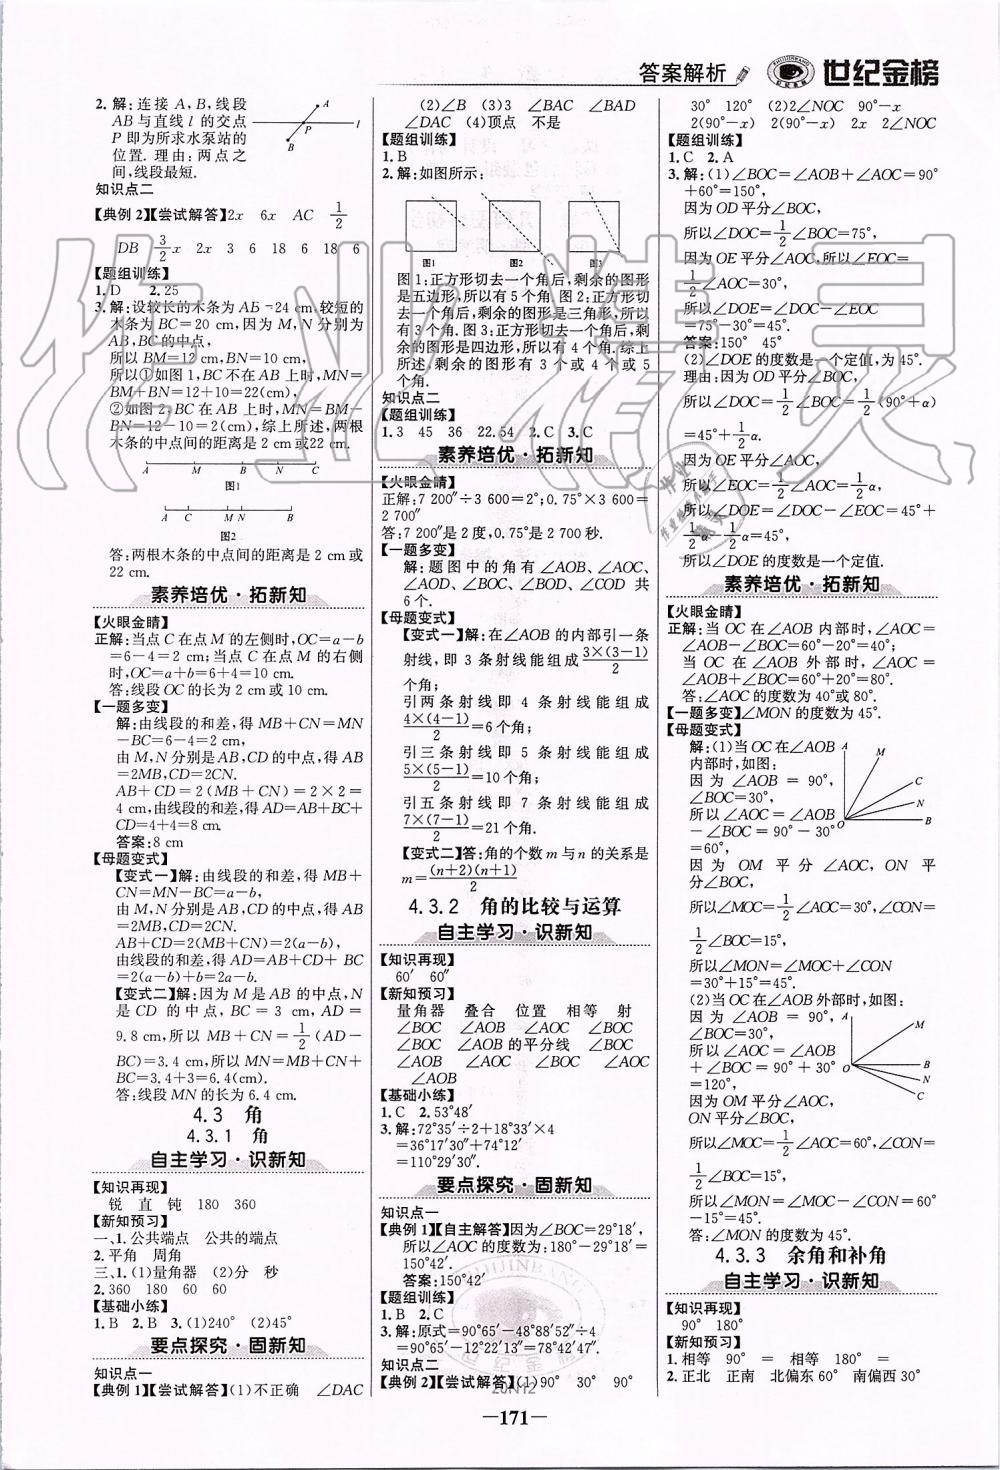 答案解析 世纪金榜
2. 解:连接 A,B,线段
AB与直线 l 的交点
P 即为所求水泵站的
位置. 理由:两点之
间,线段最短.
A
P
l
B
知识点二
【典例 2】【尝试解答】2x 6x AC 1/2
DB 3/2 x 2x 3 6 18 6 18 6
【题组训练】
1. D 2. 25
3. 解:设较长的木条为 AB=24 cm,较短的
木条为 BC=20 cm,因为 M,N 分别为
AB,BC 的中点,
所以 BM=12 cm,BN=10 cm,
所以①如图 1,BC 不在 AB 上时,MN=
BM+BN=12+10=22(cm),
②如图 2,BC 在 AB 上时,MN=BM-
BN=12-10=2(cm),综上所述,两根
木条的中点间的距离是 2 cm或22 cm.
A M B N C
图1
A C M N B
图2
答:两根木条的中点间的距离是 2 cm或
22 cm.
素养培优·拓新知
【火眼金睛】
正解:当点 C 在点 M 的左侧时,OC=a-b
=6-4=2 cm;当点 C 在点 M 的右侧
时,OC=a+b=6+4=10 cm.
答:线段 OC 的长为 2 cm或 10 cm.
【一题多变】
解:由线段的和差,得 MB+CN=MN
-BC=6-4=2 cm,
由 M,N 分别是 AB,CD 的中点,得 AB
=2MB,CD=2CN.
AB+CD=2(MB+CN)=2×2=
4 cm,由线段的和差,得AD=AB+BC+
CD=4+4=8 cm.
答案:8 cm
【母题变式】
【变式一】解:由线段的和差,得 MB+
CN=MN-BC=a-b,
由 M,N 分别是 AB,CD 的中点,得 AB
=2MB,CD=2CN.
AB+CD=2(MB+CN)=2(a-b),
由线段的和差,得 AD=AB+CD+BC=
2(a-b)+b=2a-b.
【变式二】解:因为 M 是 AB 的中点,N
是 CD 的中点,BC=3 cm,AD=
9.8 cm,所以 MB+CN=1/2(AD-
BC)=3.4 cm,所以 MN=MB+CN+
BC=3.4+3=6.4(cm).
答:线段 MN 的长为 6.4 cm.
4.3 角
4.3.1 角
自主学习·识新知
【知识再现】
锐 直 钝 180 360
【新知预习】
一、1. 公共端点 公共的端点
2. 平角 周角
三、1. (1)量角器 (2)分 秒
2. 360 180 60 60
【基础小练】
1. B 2. B 3. (1)240° (2)45°
要点探究·固新知
知识点一
【典例 1】【尝试解答】(1)不正确 ∠DAC
(2)∠B (3)3 ∠BAC ∠BAD
∠DAC (4)顶点 不是
【题组训练】
1. B
2. 解:如图所示:
图1 图2 图3
图 1:正方形切去一个角后,剩余的图形
是五边形,所以有 5 个角. 图 2:正方形切
去一个角后,剩余的图形是三角形,所以
有 3 个角. 图 3:正方形切去一个角后,剩
余的图形是四边形,所以有 4 个角. 综上
所述,剩余的图形有 3 个或 4 个或 5
个角.
知识点二
【题组训练】
1. 3 45 36 22.54 2. C 3. C
素养培优·拓新知
【火眼金睛】
正解:7 200″÷3 600=2°;0.75°×3 600=
2 700″
答:7 200″是 2 度,0.75°是 2 700 秒.
【一题多变】
解:题图中的角有∠AOB、∠AOC、
∠AOD、∠BOC、∠BOD、∠COD 共
6 个.
【母题变式】
【变式一】解:在∠AOB 的内部引一条
射线,即 3 条射线能组成 3×(3-1)/2
个角;
引两条射线即 4 条射线能组成
4×(4-1)/2=6 个角;
引三条射线即 5 条射线能组成
5×(5-1)/2=10 个角;
引五条射线即 7 条射线能组成
7×(7-1)/2=21 个角.
【变式二】答:角的个数 m 与 n 的关系是
m=(n+2)(n+1)/2
4.3.2 角的比较与运算
自主学习·识新知
【知识再现】
60′ 60″
【新知预习】
量角器 叠合 位置 相等 射
∠BOC ∠AOB ∠AOC ∠BOC
∠BOC ∠AOB 的平分线 ∠BOC
∠AOB ∠AOC ∠BOC ∠AOC
∠AOB
【基础小练】
1. C 2. 53°48′
3. 解:72°35′÷2+18°33′×4
=36°17′30″+74°12′
=110°29′30″.
要点探究·固新知
知识点一
【典例 1】【自主解答】因为∠BOC=29°18′,
所以∠AOC 的度数为:180°-29°18′=
150°42′.
答案:150°42′
【题组训练】
1. B 2. C
3. 解:原式=90°65′-48°88′52″÷4
=90°65′-12°22′13″=78°42′47″.
知识点二
【典例 2】【尝试解答】(1)90° 30° 90°
30° 120° (2)2∠NOC 90°-x
2(90°-x) 2(90°-x) 2x 2∠NOC
【题组训练】
1. C 2. A
3. 解:(1)∠BOC=∠AOB+∠AOC=90°
+60°=150°,
因为 OD 平分∠BOC,
所以∠DOC=1/2∠BOC=75°,
因为OE平分∠AOC,所以∠EOC=
1/2∠AOC=30°,
所以∠DOE=∠DOC-∠EOC
=75°-30°=45°.
答案:150° 45°
(2)∠DOE 的度数是一个定值,为 45°.
理由:因为 OD 平分∠BOC,
所以∠DOC=1/2∠BOC=1/2(90°+α)
=45°+1/2α.
因为 OE 平分∠AOC,
所以∠EOC=1/2∠AOC=1/2α,
所以∠DOE=∠DOC-∠EOC=45°+
1/2α-1/2α=45°,
所以∠DOE 的度数是一个定值.
素养培优·拓新知
【火眼金睛】
正解:当 OC 在∠AOB 内部时,∠AOC=
∠AOB-∠BOC=60°-20°=40°;
当 OC 在∠AOB 外部时,∠AOC=
∠AOB+∠BOC=60°+20°=80°.
答:∠AOC 的度数为 40°或 80°.
【一题多变】∠MON 的度数为 45°.
【母题变式】
解:(1)当 OC 在∠AOB
内部时,如图:
因为∠AOB=90°,
∠BOC=30°,
所以∠AOC=∠AOB
-∠BOC=90°-30°
=60°,
A M C N B O
因为 OM 平分∠AOC,ON 平
分∠BOC,
所以∠MOC=1/2∠AOC=30°,∠CON=
1/2∠BOC=15°,
所以∠MON=∠MOC+∠CON
=30°+15°=45°.
(2)当 OC 在∠AOB 外部时,如图:
因为∠AOB=90°,
∠BOC=30°,
所以∠AOC=∠AOB
+∠BOC=90°+30°
=120°,
A M B N C O
因为 OM 平分∠AOC,
ON 平分∠BOC,
所以∠MOC=1/2∠AOC=60°,∠CON=
1/2∠BOC=15°,
所以∠MON=∠MOC-∠CON=60°
-15°=45°.
答:∠MON 的度数为 45°.
4.3.3 余角和补角
自主学习·识新知
【知识再现】
90° 180°
【新知预习】
1. 相等 90° = 相等 180° =
2. 正北 正南 北偏东60° 南偏西30°
—171—
作业精灵